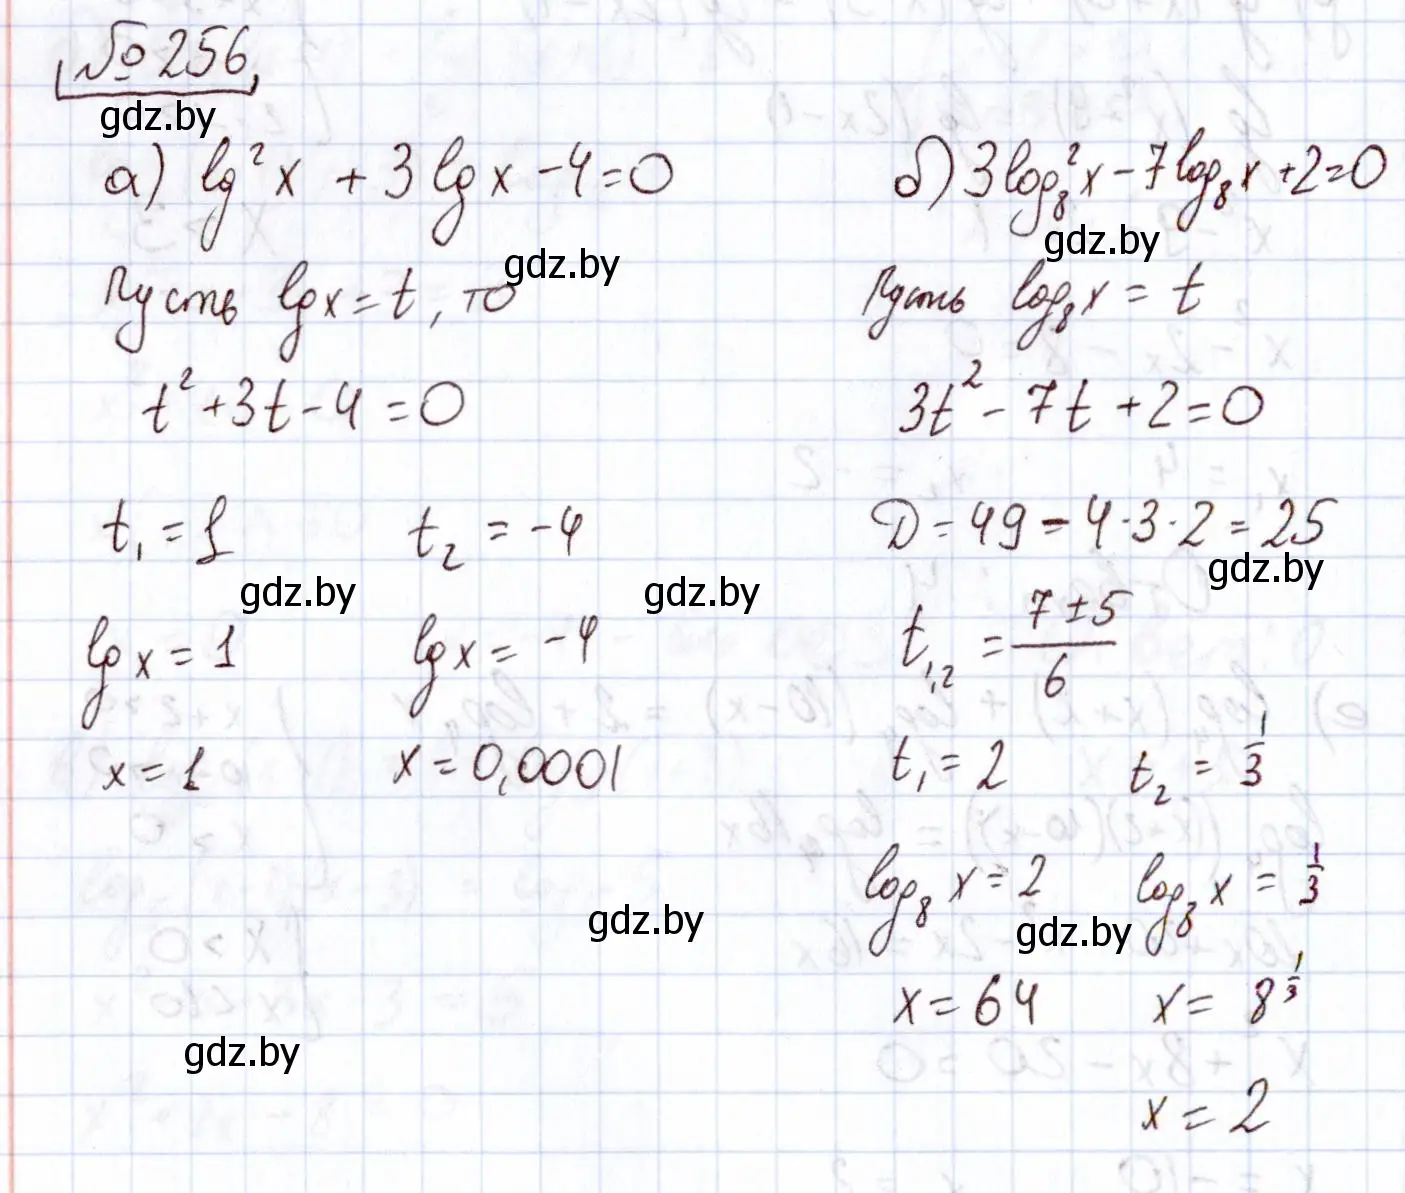 №256,
gdz.by
а) lg²x + 3lgx - 4 = 0
gdz.by
Пусть lgx = t, то
t² + 3t - 4 = 0
t₁ = 1 t₂ = -4
gdz.by gdz.by
lgx = 1 lgx = -4
x = 1 x = 0,0001
gdz.by
gdz.by
б) 3log₈²x - 7log₈x + 2 = 0
gdz.by
Пусть log₈x = t
3t² - 7t + 2 = 0
D = 49 - 4·3·2 = 25
gdz.by
t₁,₂ = (7±5)/6
t₁ = 2 t₂ = 1/3
log₈x = 2 log₈x = 1/3
gdz.by
x = 64 x = 8^(1/3)
x = 2